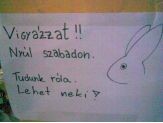 Vigyázzat!!
Nyúl szabadon.
Tudunk róla.
Lehet neki